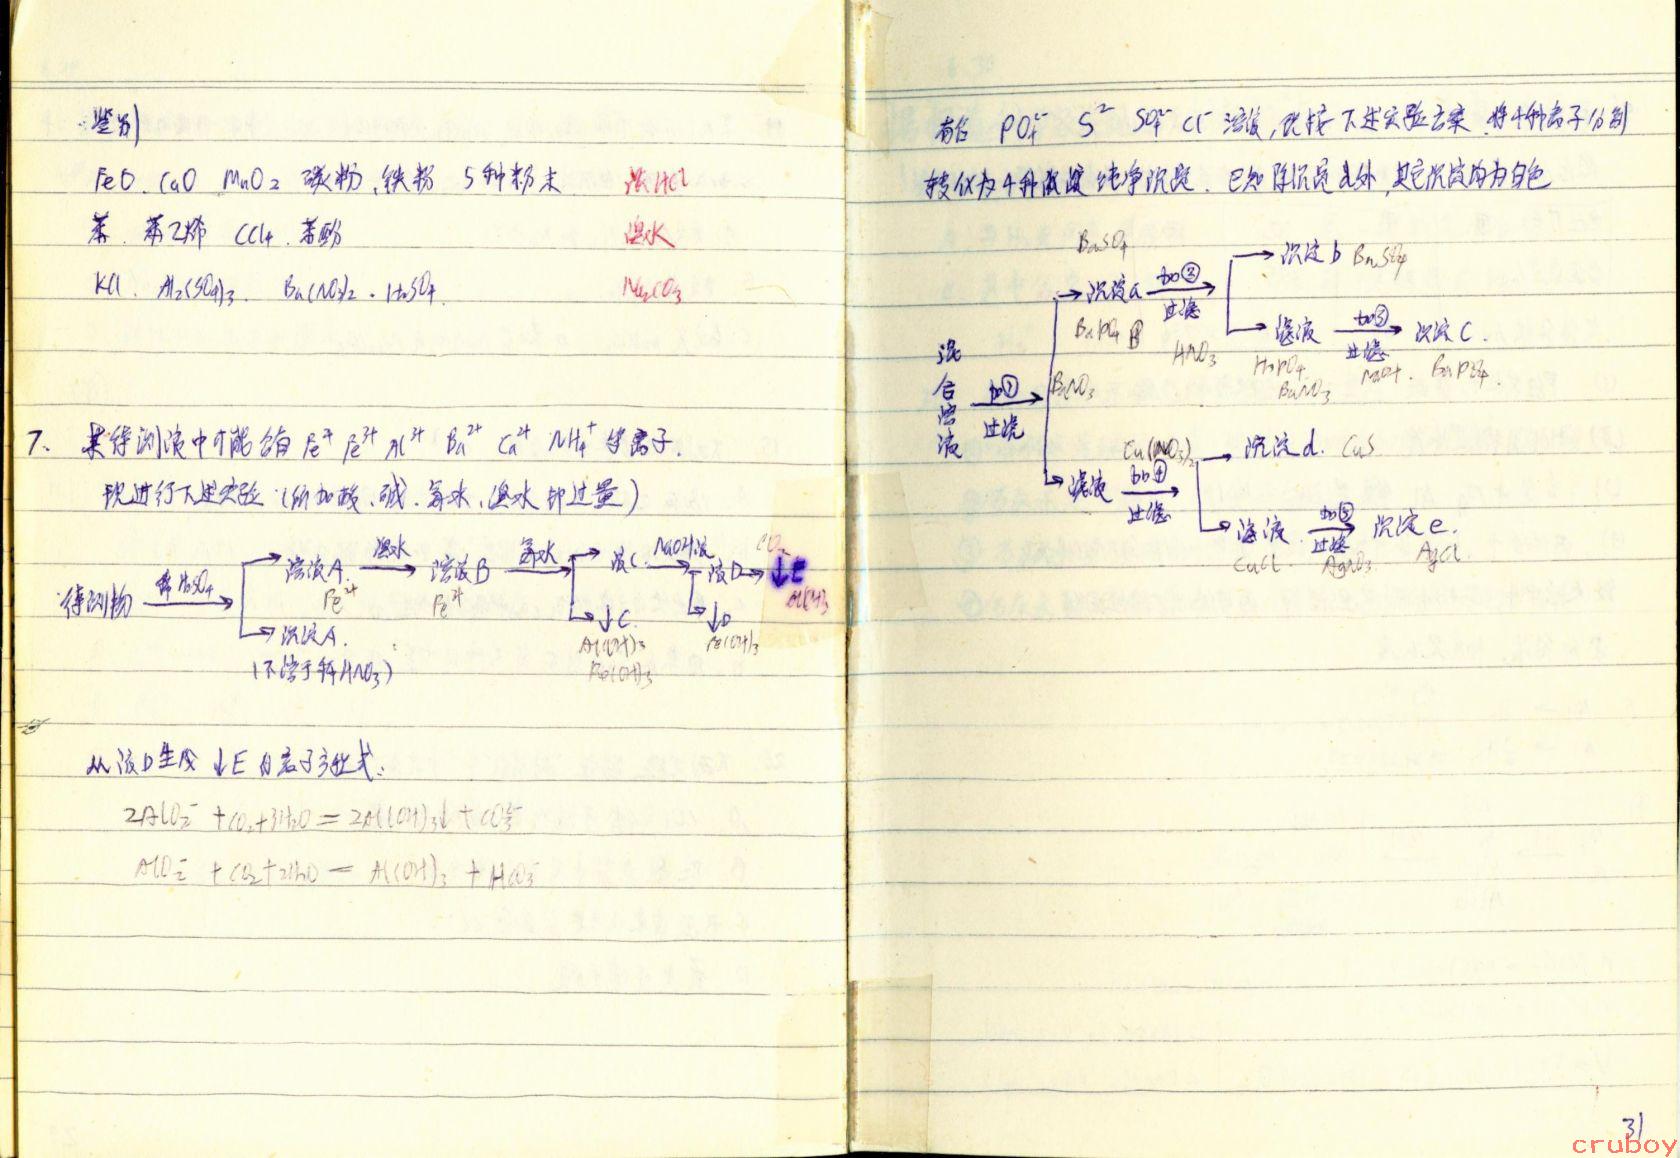 鉴别
FeO. CuO MnO2 碳粉,铁粉 5种粉末 浓HCl
苯. 苯乙烯 CCl4. 苯酚 溴水
KCl. Al2(SO4)3. Ba(NO3)2. H2SO4. Na2CO3
7、某待测液中可能含有 Fe2+ Fe3+ Al3+ Ba2+ Ca2+ NH4+ 等离子.
现进行下述实验 (所加酸、碱、氨水、溴水都过量)
待测物 稀H2SO4
溶液A. Fe2+ 溴水 溶液B Fe3+ 氨水
液C. NaOH液 液D CO2 ↓E Al(OH)3
↓C. Al(OH)3 Fe(OH)3
↓D Fe(OH)3
沉淀A.
(不溶于稀HNO3)
从液D生成↓E的离子方程式:
2AlO2- + CO2+3H2O = 2Al(OH)3↓ + CO3 2-
AlO2- + CO2+2H2O = Al(OH)3 + HCO3-
有含 PO4 3- S2- SO4 2- Cl- 溶液,现按下述实验方案.将4种离子分别
转化为4种纯净沉淀. 已知除沉淀d外,其它沉淀均为白色
混合溶液 加① 过滤 BaNO3
BaSO4
沉淀a 加② 过滤 HNO3
BaPO4
沉淀b BaSO4
滤液 加③ 过滤 沉淀C.
H3PO4 BaNO3 NaOH.
滤液 加④ 过滤 Cu(NO3)2
沉淀d. CuS
滤液. 加⑤ 过滤 沉淀e.
CuCl. AgNO3 AgCl
31
cruboy